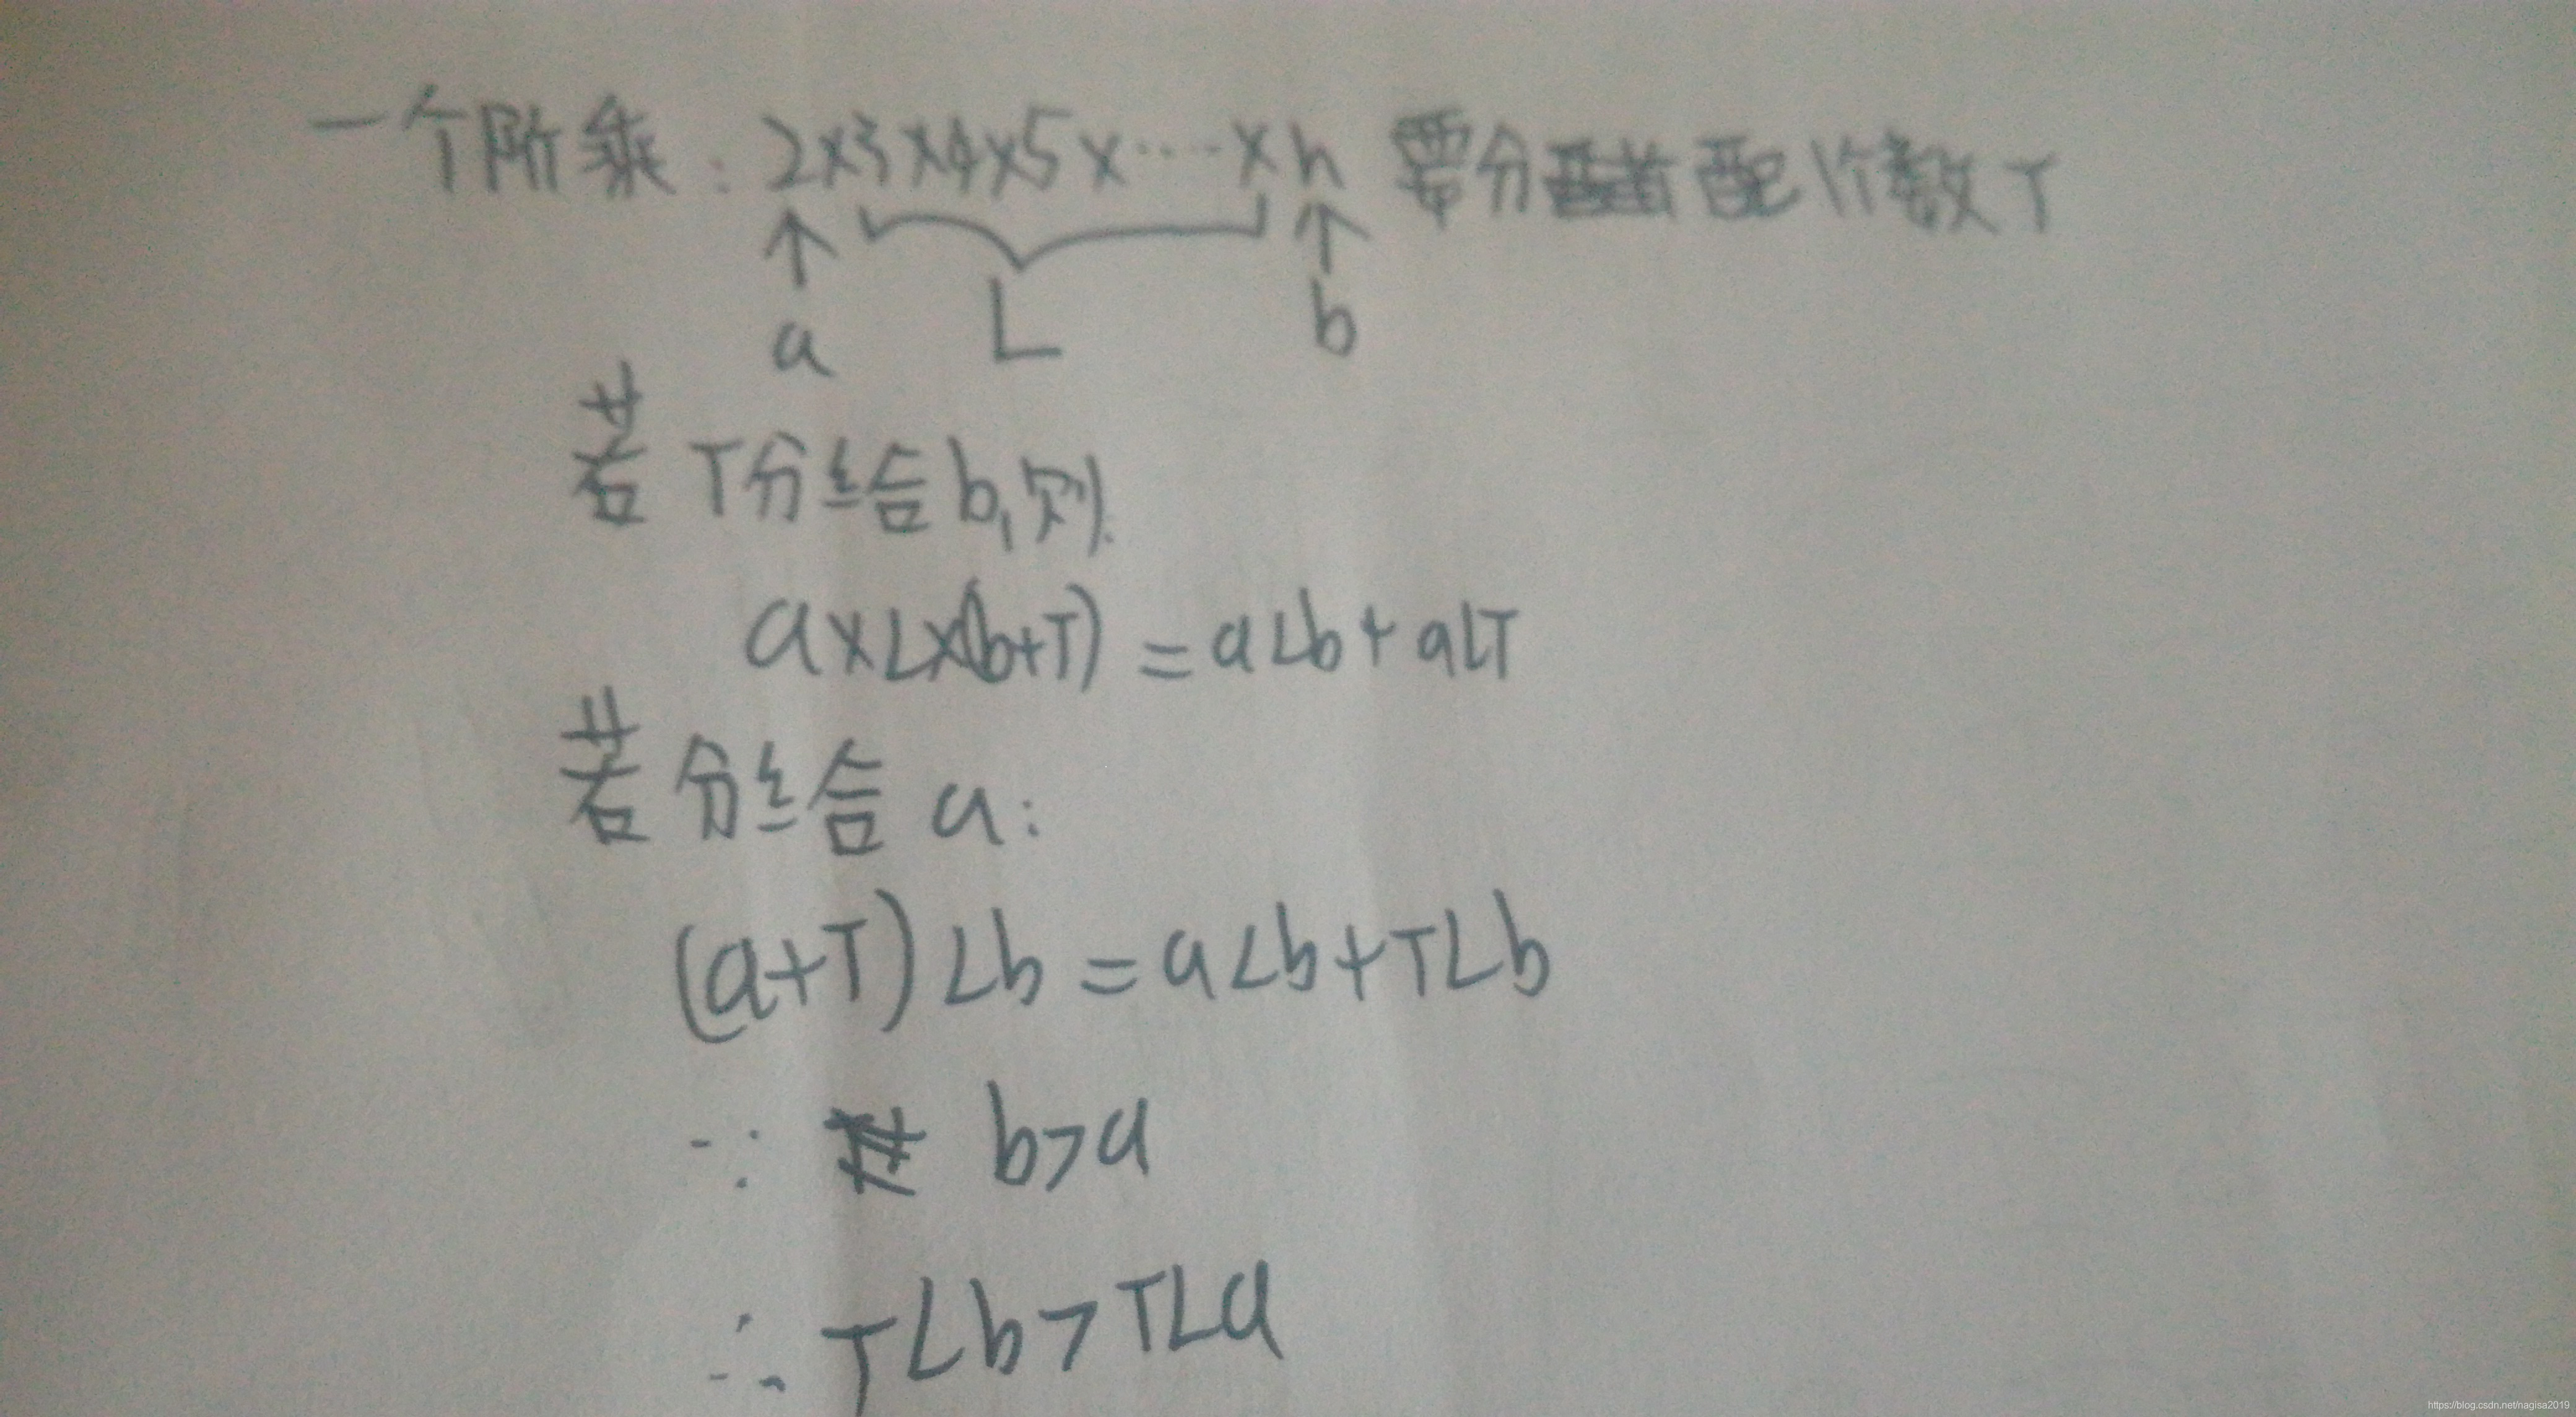 一个阶乘：2×3×4×5×……×n 要分配1个数T
a L b
若T分给b,则:
a×L×(b+T)=aLb+aLT
若分给a:
(a+T)Lb=aLb+TLb
∵ b>a
∴ TLb>TLa
https://blog.csdn.net/nagisa2019